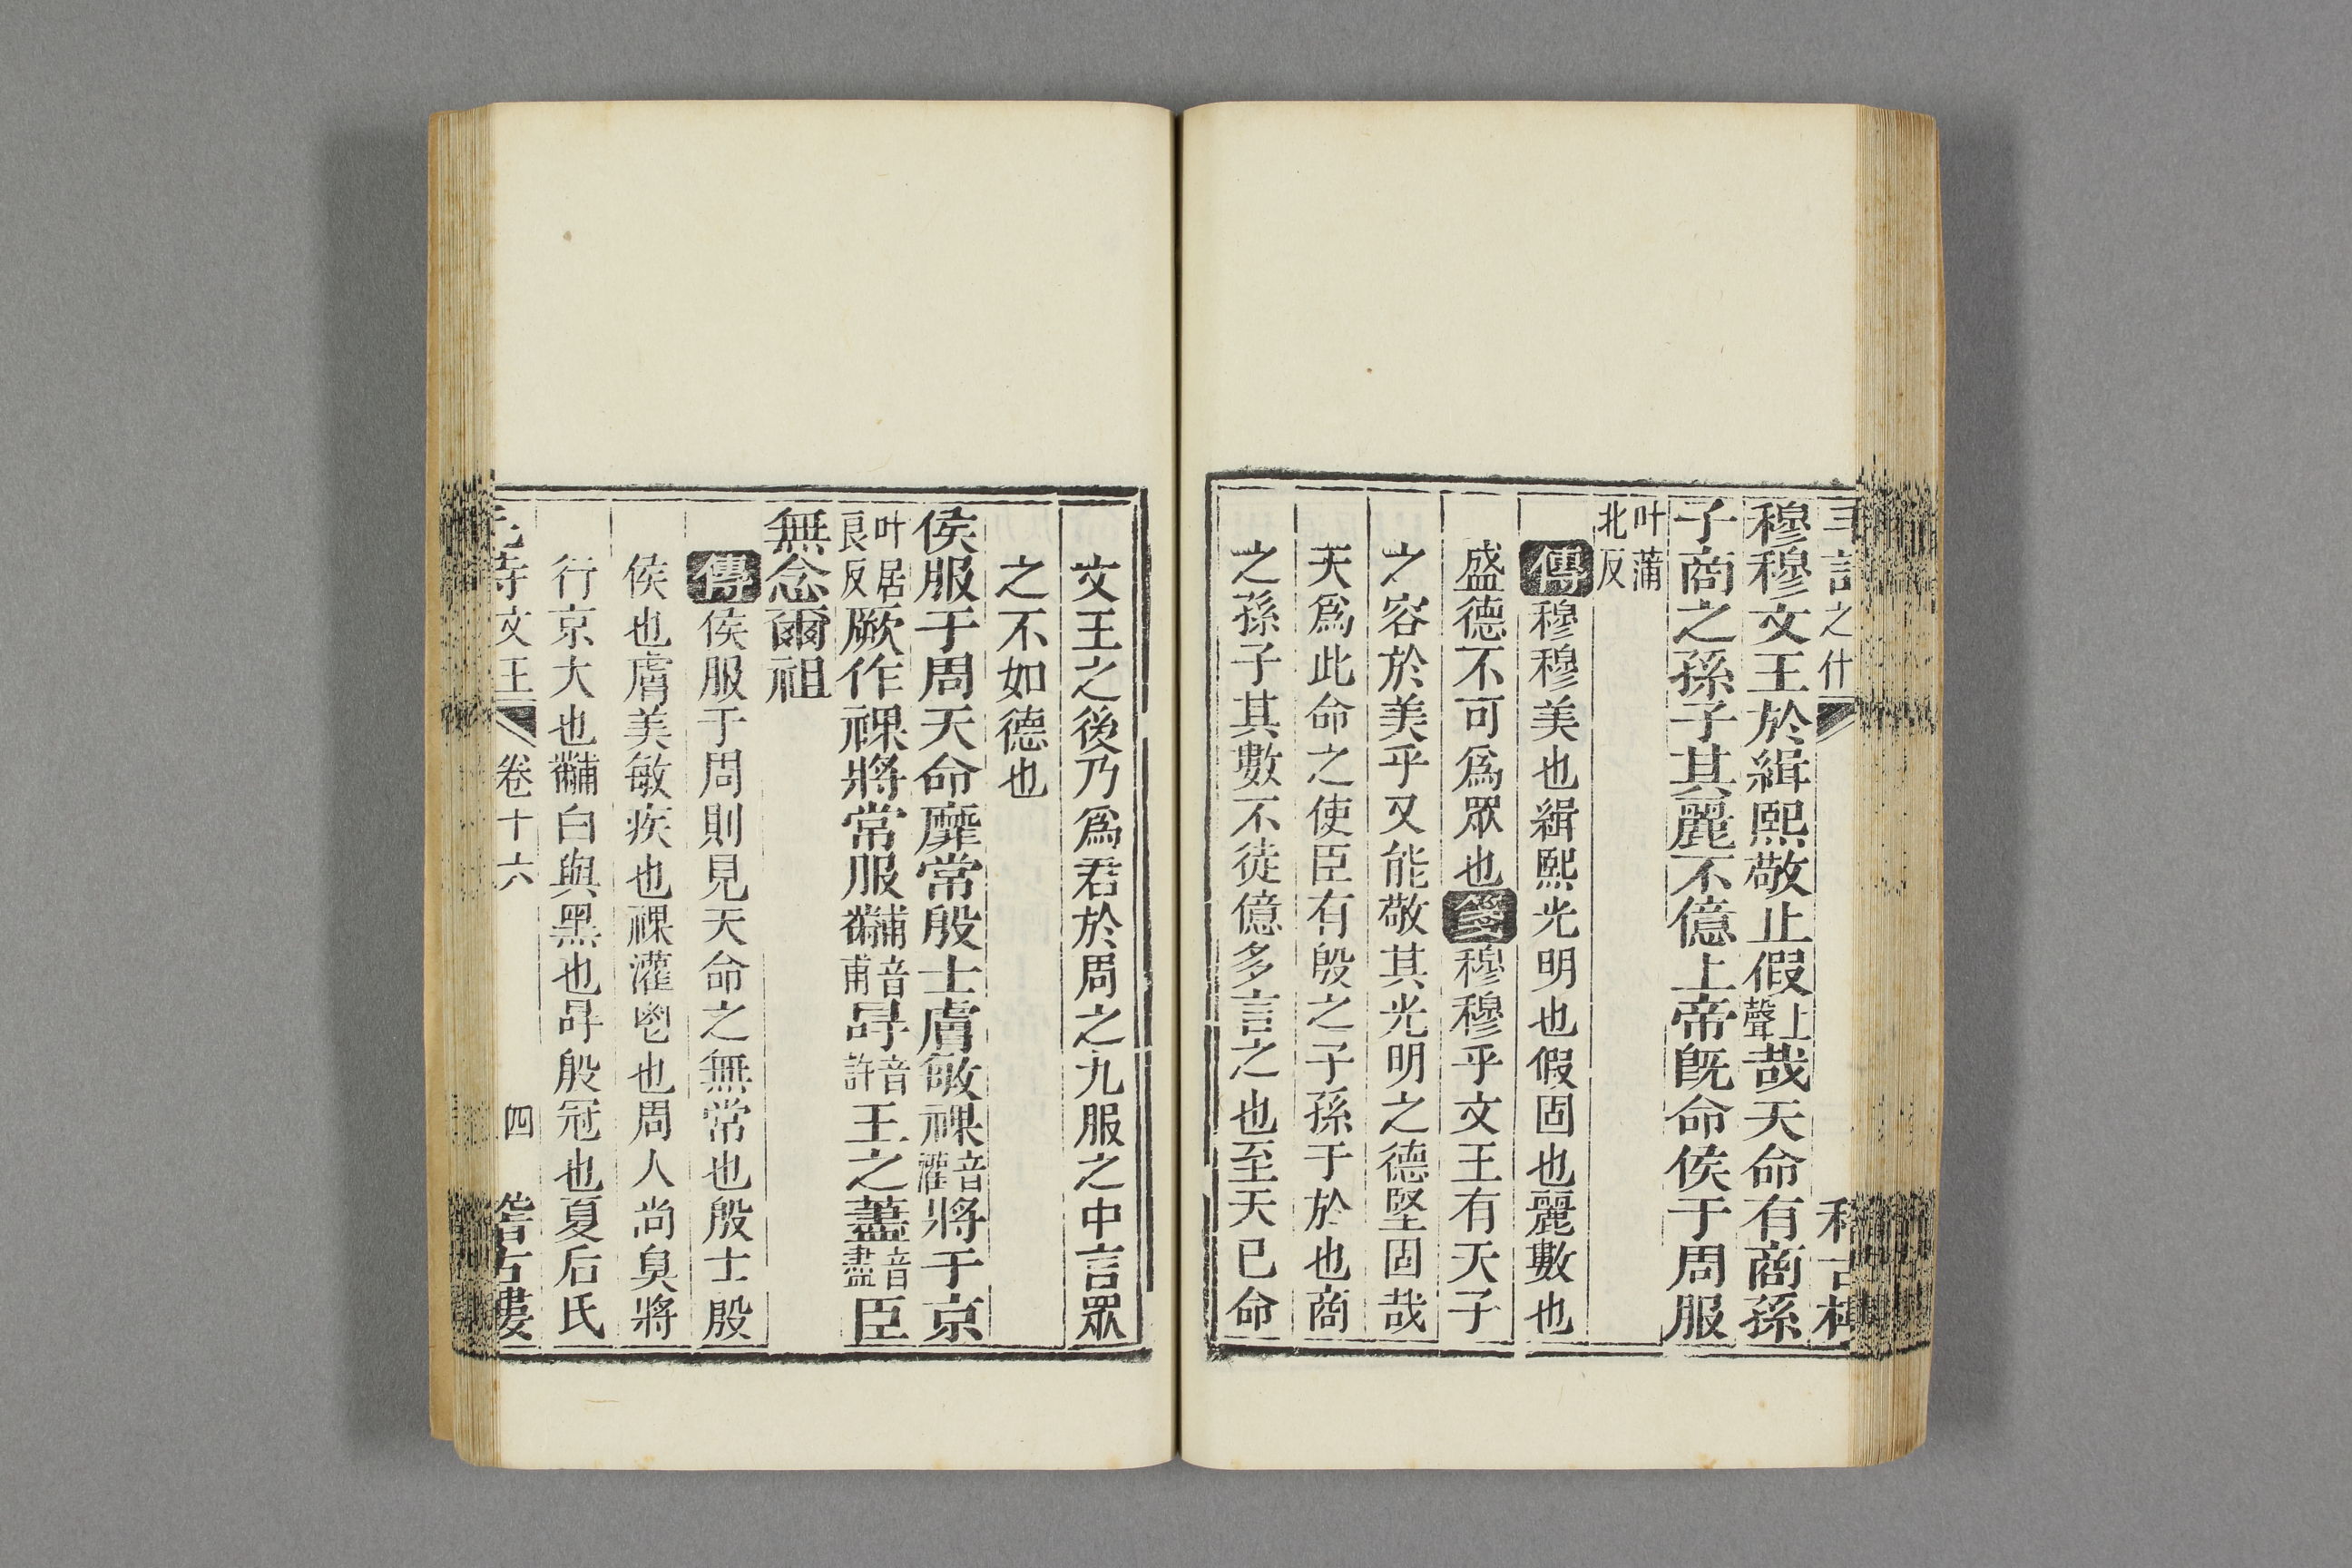 之什
穆穆文王於緝熙敬止假上聲哉天命有商孫
子商之孫子其麗不億上帝旣命侯于周服
叶蒲北反
傳穆穆美也緝熙光明也假固也麗數也
盛德不可爲眾也箋穆穆乎文王有天子
之容於美乎又能敬其光明之德堅固哉
天爲此命之使臣有殷之子孫于於也商
之孫子其數不徒億多言之也至天已命
文王之後乃爲君於周之九服之中言眾
之不如德也
侯服于周天命靡常殷士膚敏祼音灌將于京
叶居良反厥作祼將常服黼音甫冔音許王之藎音盡臣
無念爾祖
傳侯服于周則見天命之無常也殷士殷
侯也膚美敏疾也祼灌鬯也周人尚臭將
行京大也黼白與黑也冔殷冠也夏后氏
毛詩文王 卷十六 四 䇓古樓